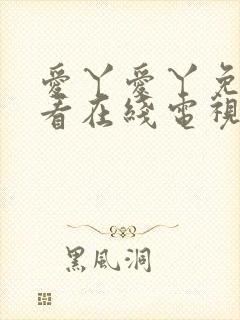 愛丫愛丫免
看在綫電視
黑風洞